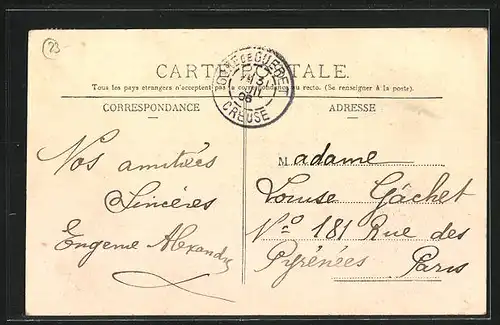 23
CARTE POSTALE.
Tous les pays étrangers n'acceptent pas la correspondance au recto. (Se renseigner à la poste).
CORRESPONDANCE
ADRESSE
GARE DE GUERET
CREUSE
Vos amitiés
Sincères
Eugenie Alexandre
Madame
Louise Gâchet
Nº 181 Rue des
Pyrénées Paris